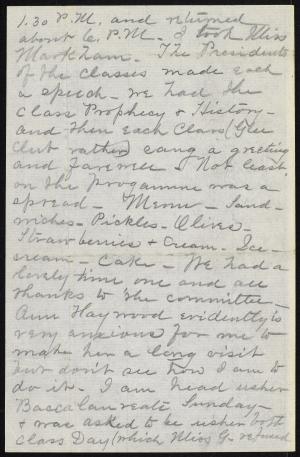 1.30 P.M. and returned
about 6. P.M. I took Miss
Markham. The Presidents
of the classes made each
a speech - we had the
Class Prophecy & History -
and then each Class (Glee
Club rather) sang a greeting
and farewell. Not least
on the Programme was a
spread - Menu - Sand-
wiches - Pickles - Olives -
Strawberries & Cream. Ice-
cream - Cake - We had a
lovely time one and all
thanks to the committee -
Ann Haywood evidently is
very anxious for me to
make her a long visit
but don't see how I am to
do it. I am head usher
Baccalaureate Sunday -
& was asked to be usher both
Class Day (which Miss G. refused